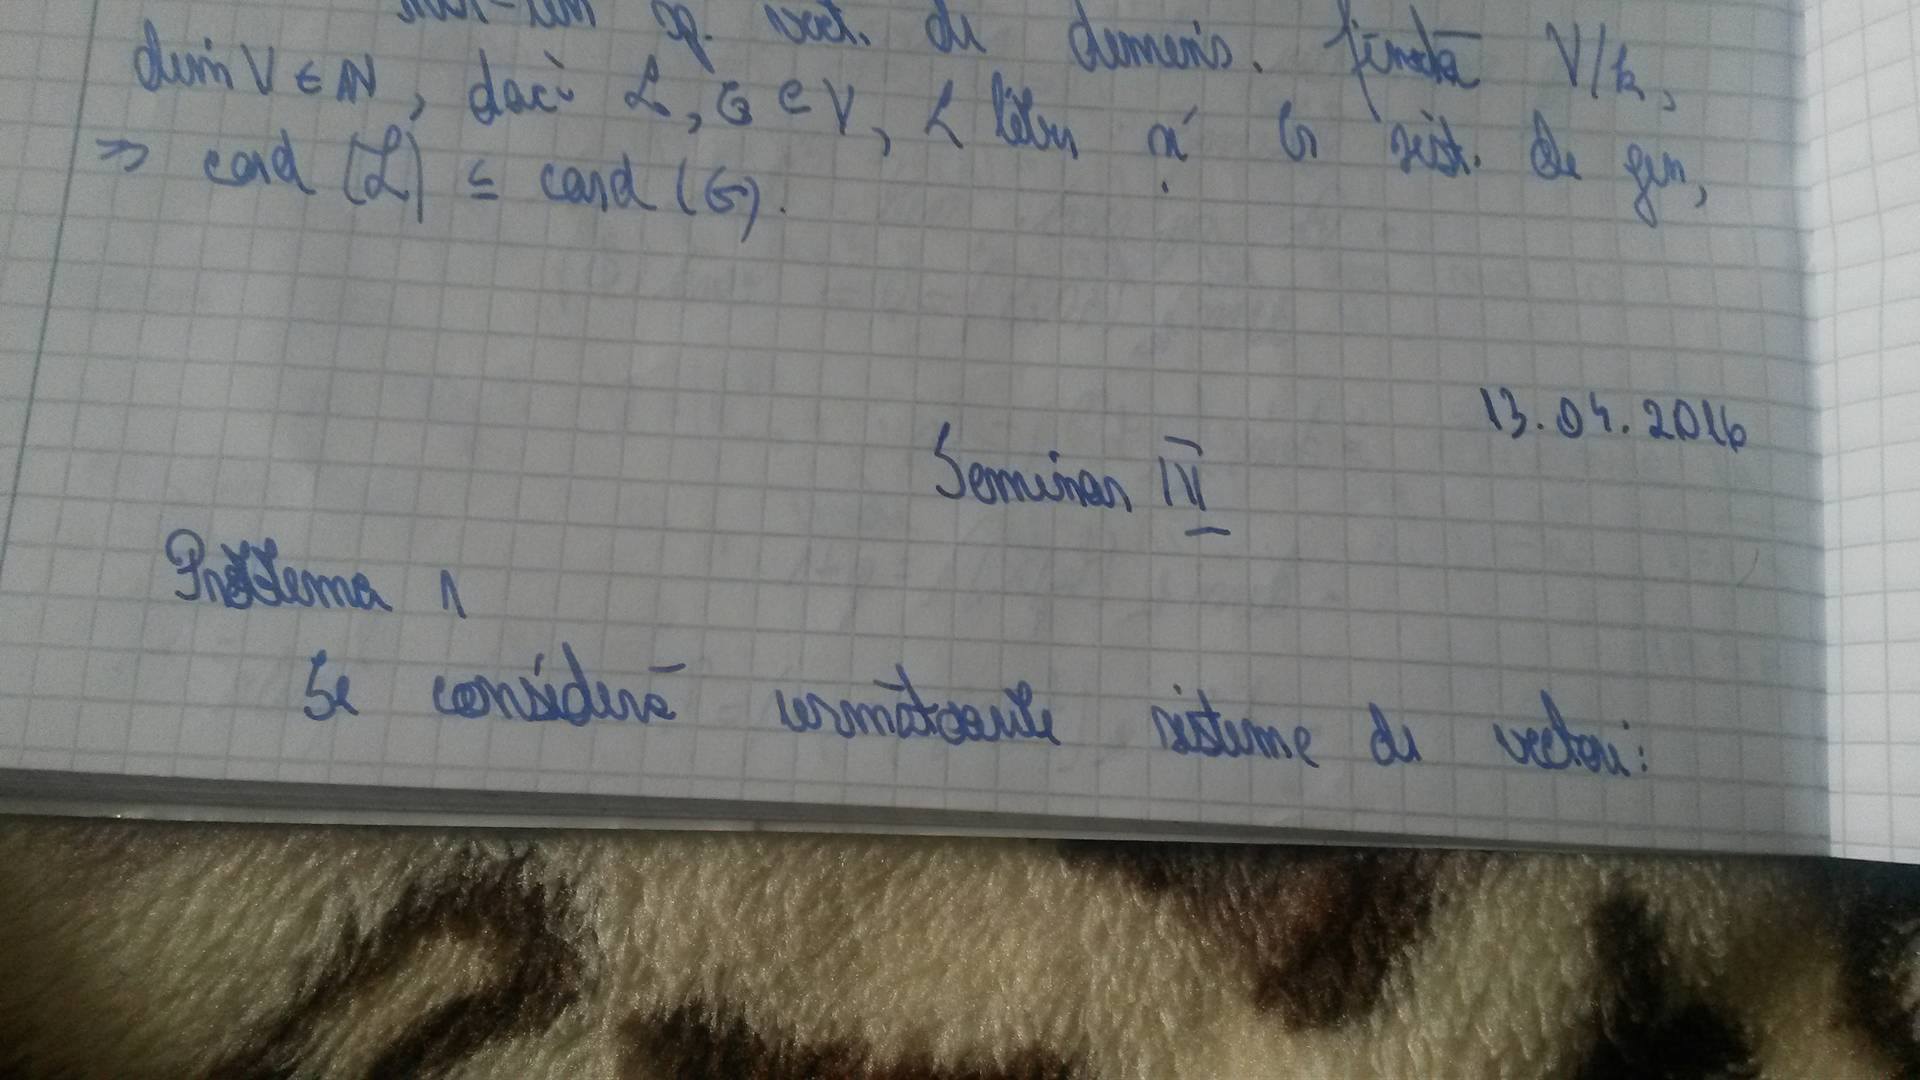 sp. vect. de dimens. finită V/k,
dim V ∈ N, dacă L, G ⊂ V, L liber și G sist. de gen,
⇒ card (L) ≤ card (G).
13.04.2016
Seminar IV
Problema 1
Se consideră următoarele sisteme de vectori: